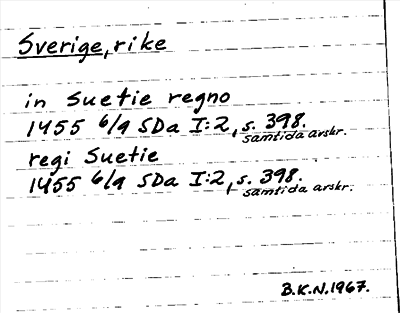 Sverige, rike
in Suetie regno
1455 6/9 SDa I:2, s. 398.
samtida avskr.
regi Suetie
1455 6/9 SDa I:2, s. 398.
samtida avskr.
B.K.N.1967.